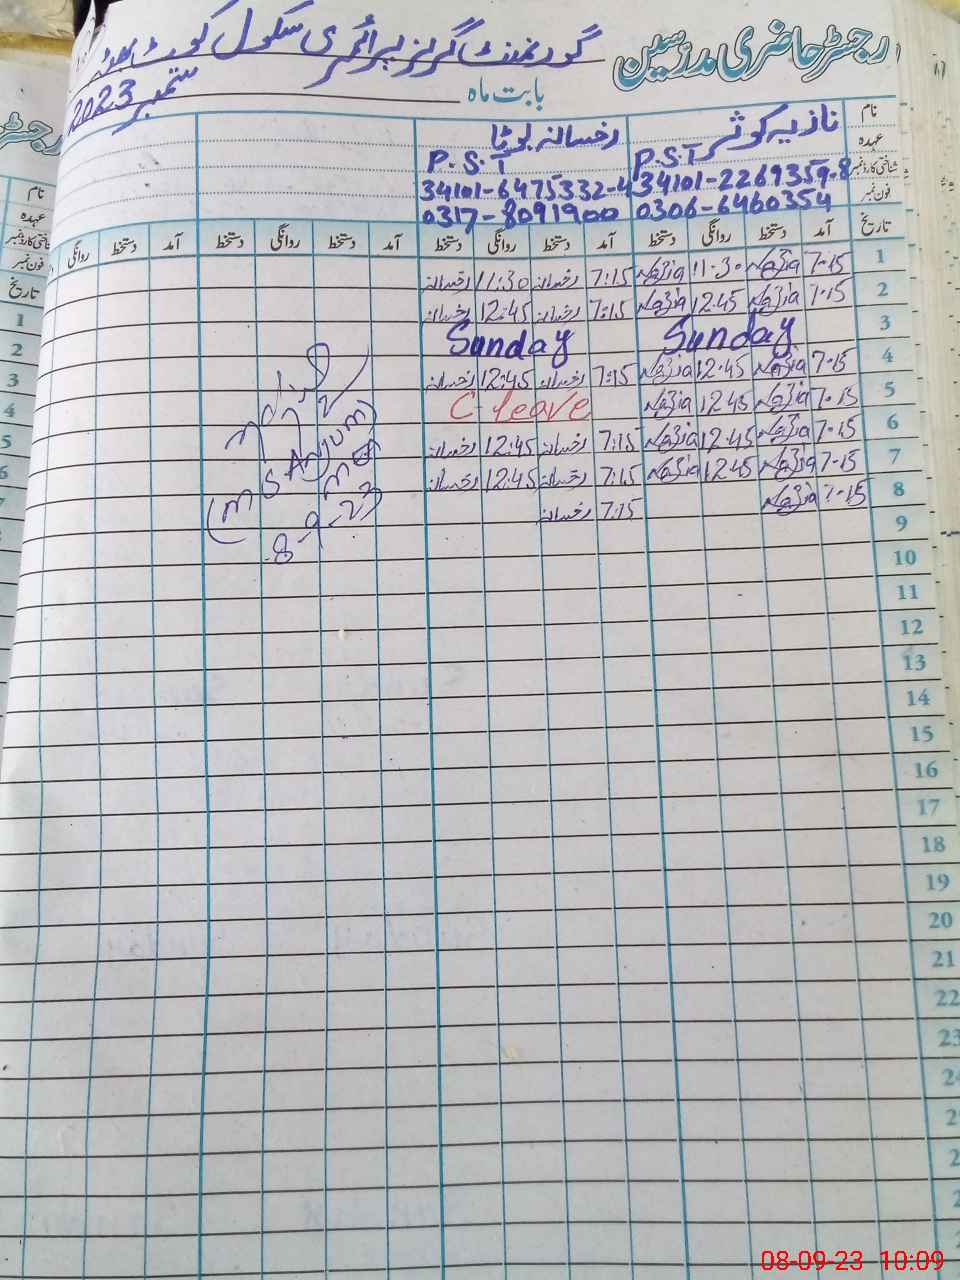 رجسٹر حاضری مدرسین گورنمنٹ گرلز پرائمری سکول کوٹ
بابت ماہ ستمبر 2023
نام نازیہ کوثر رخسانہ بوٹا
عہدہ P.S.T P.S.T
شناختی کارڈ نمبر 34101-2269359-8 34101-6475332-4
فون نمبر 0306-6460354 0317-8091900
تاریخ آمد دستخط روانگی دستخط آمد دستخط روانگی دستخط آمد دستخط روانگی دستخط آمد دستخط روانگی
1 7-15 Nazia 11-30 Nazia 7:15 رخسانہ 11:30 رخسانہ
2 7-15 Nazia 12.45 Nazia 7:15 رخسانہ 12:45 رخسانہ
3 Sunday Sunday
4 7-15 Nazia 12.45 Nazia 7:15 رخسانہ 12:45 رخسانہ
5 7-15 Nazia 12.45 Nazia C-leave
6 7-15 Nazia 12.45 Nazia 7:15 رخسانہ 12:45 رخسانہ
7 7-15 Nazia 12.45 Nazia 7:15 رخسانہ 12:45 رخسانہ
8 7-15 Nazia 7:15 رخسانہ
9
10
11
12
13
14
15
16
17
18
19
20
21
22
23
24
(M S Anjum)
8-9-23
رجسٹر
نام
عہدہ
شناختی کارڈ نمبر
فون نمبر
تاریخ
1
2
3
4
5
6
7
08-09-23 10:09